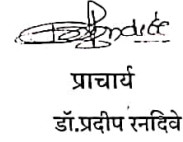 प्राचार्य
डॉ.प्रदीप रनदिवे